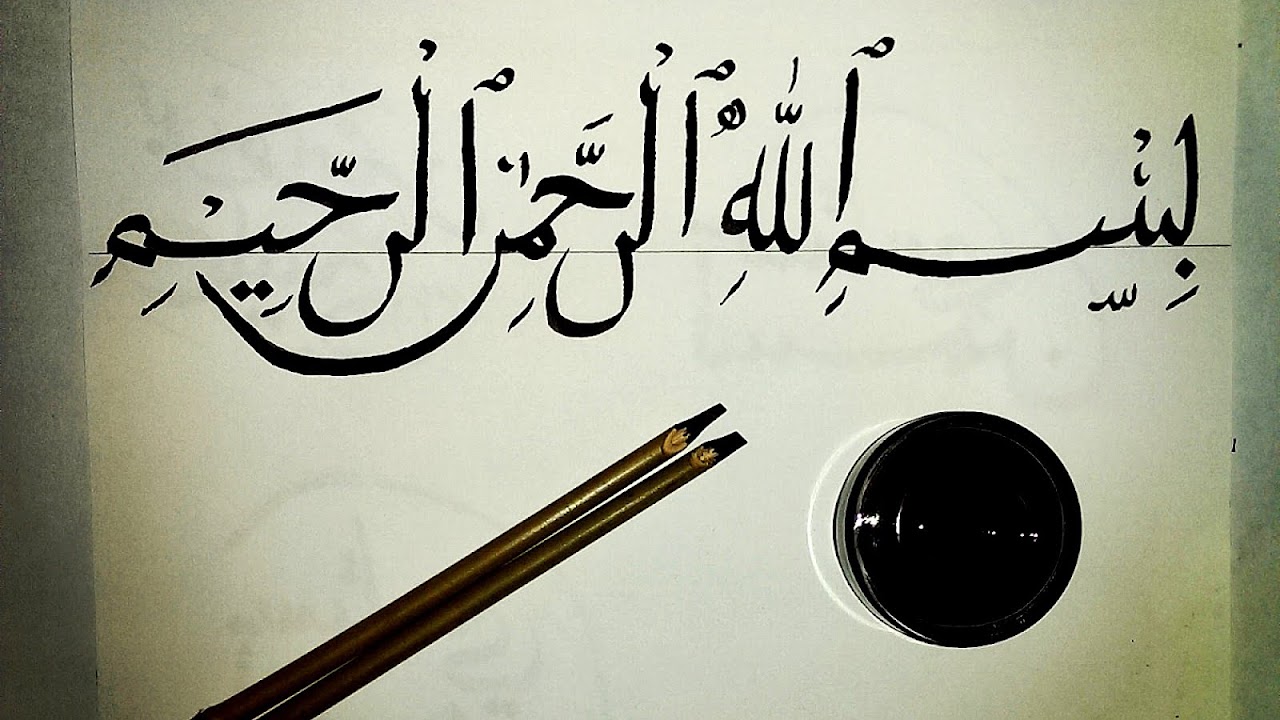 بِسْمِ ٱللَّهِ ٱلْرَّحْمَٰنِ ٱلْرَّحِيْمِ